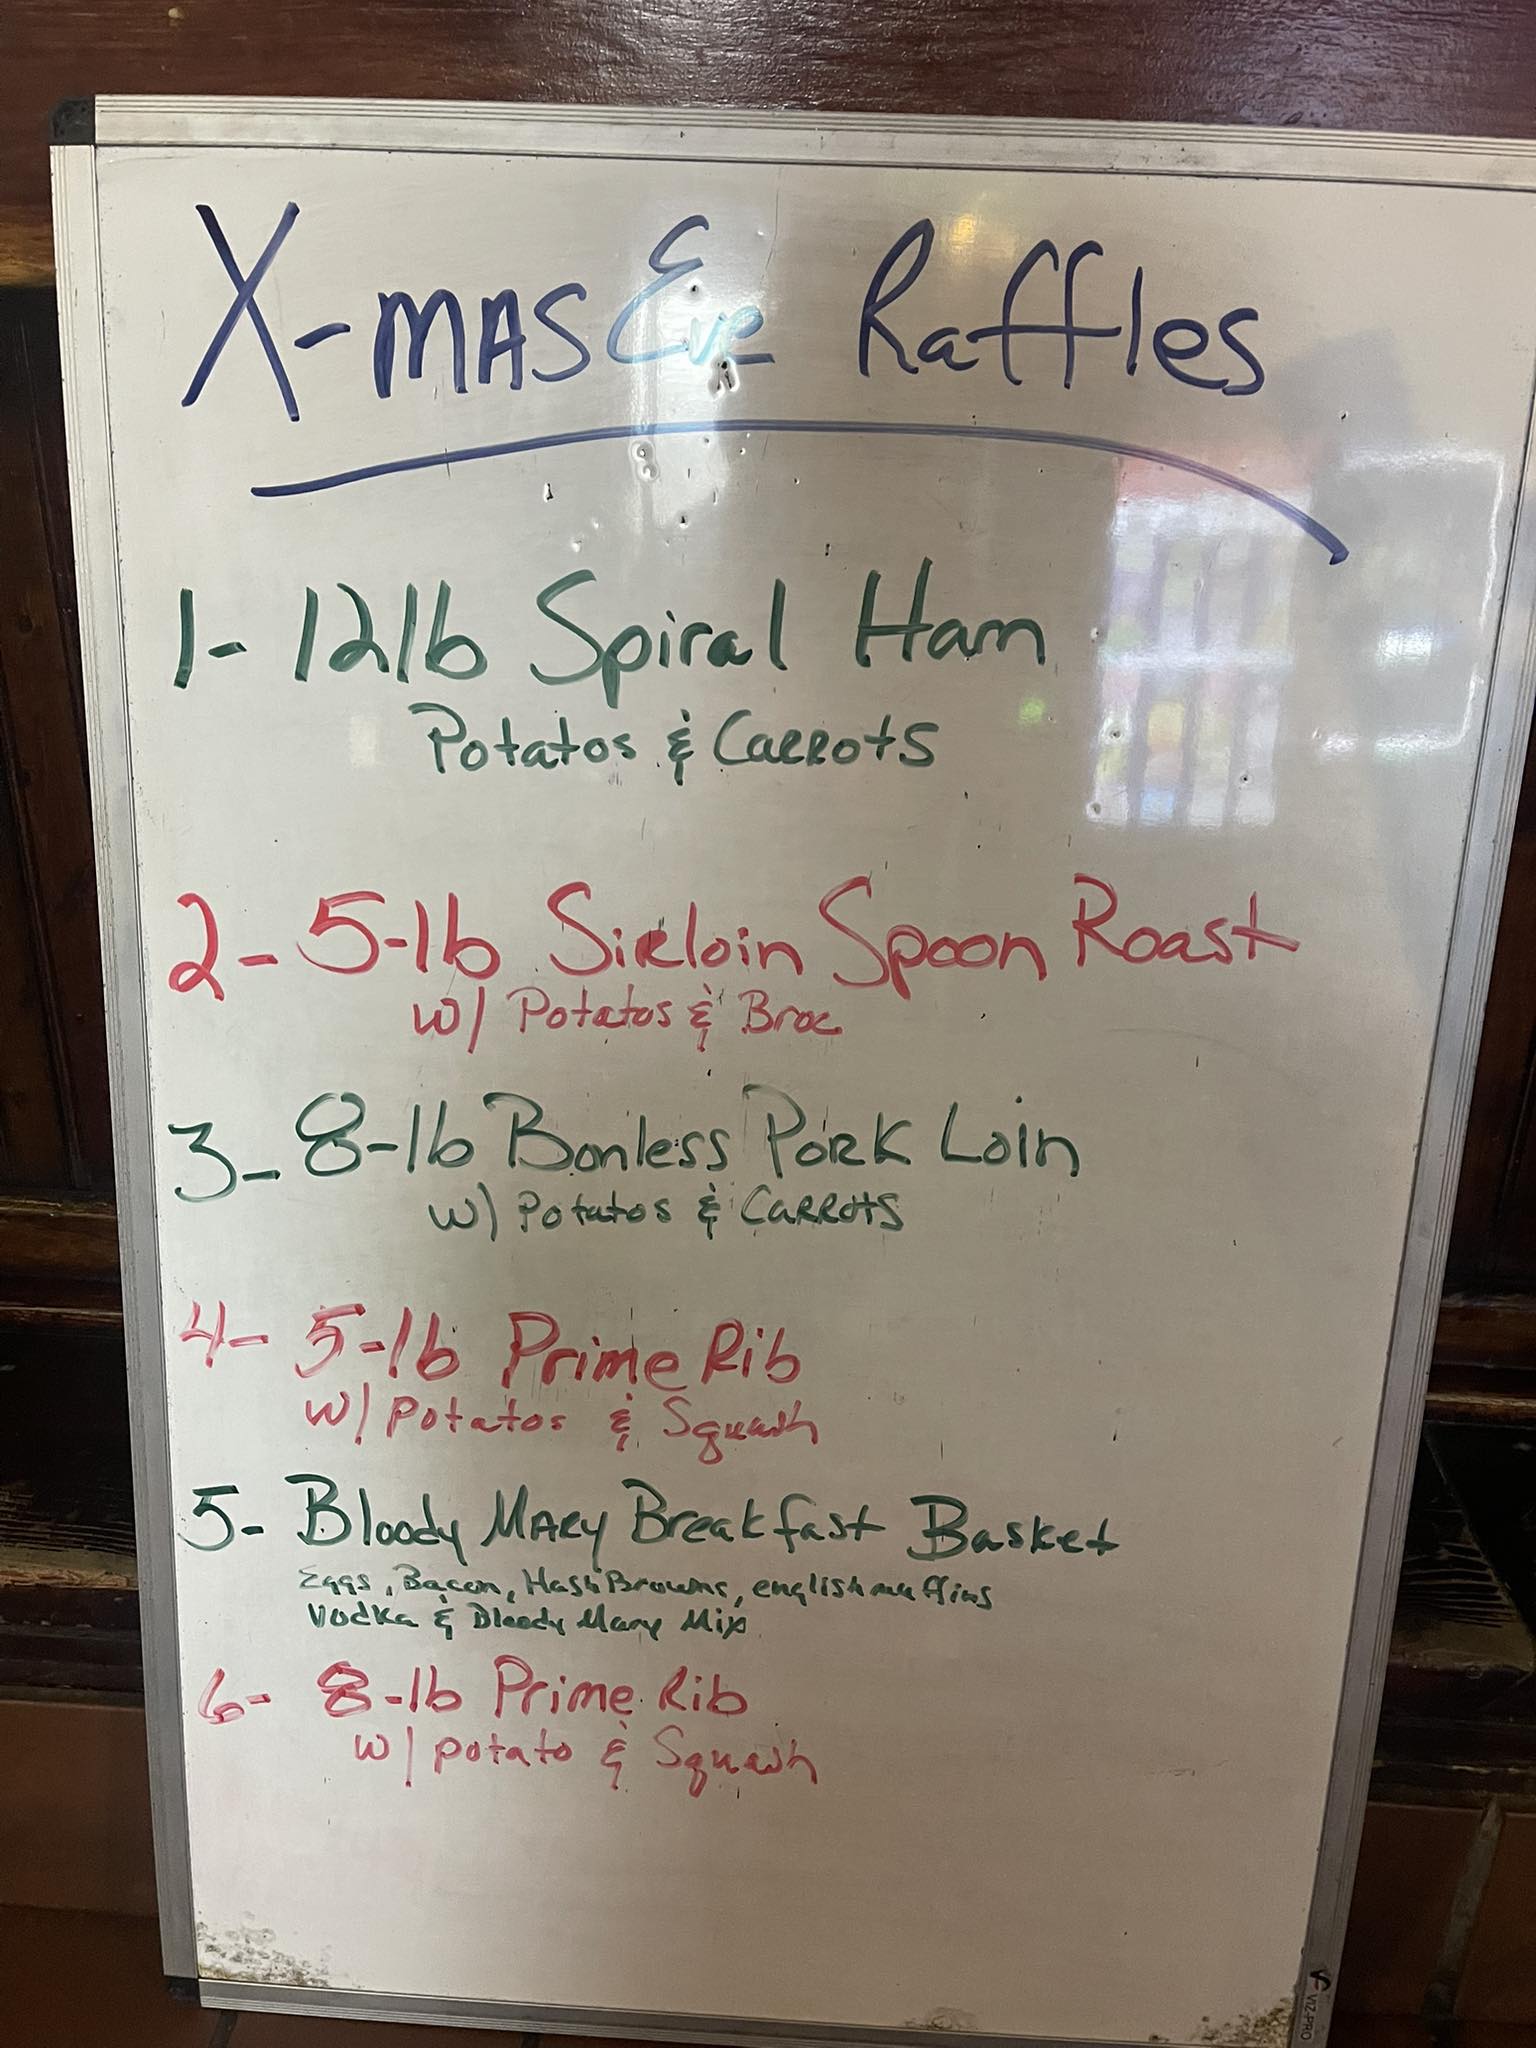 X-MAS Eve Raffles
1- 12lb Spiral Ham
Potatos & Carrots
2- 5-lb Sirloin Spoon Roast
w/ Potatos & Broc
3- 8-lb Bonless Pork Loin
w/ Potatos & Carrots
4- 5-lb Prime Rib
w/ potatos & Squash
5- Bloody Mary Breakfast Basket
Eggs, Bacon, Hash Browns, english muffins
Vodka & Bloody Mary Mix
6- 8-lb Prime Rib
w/ potato & Squash
VIZ-PRO